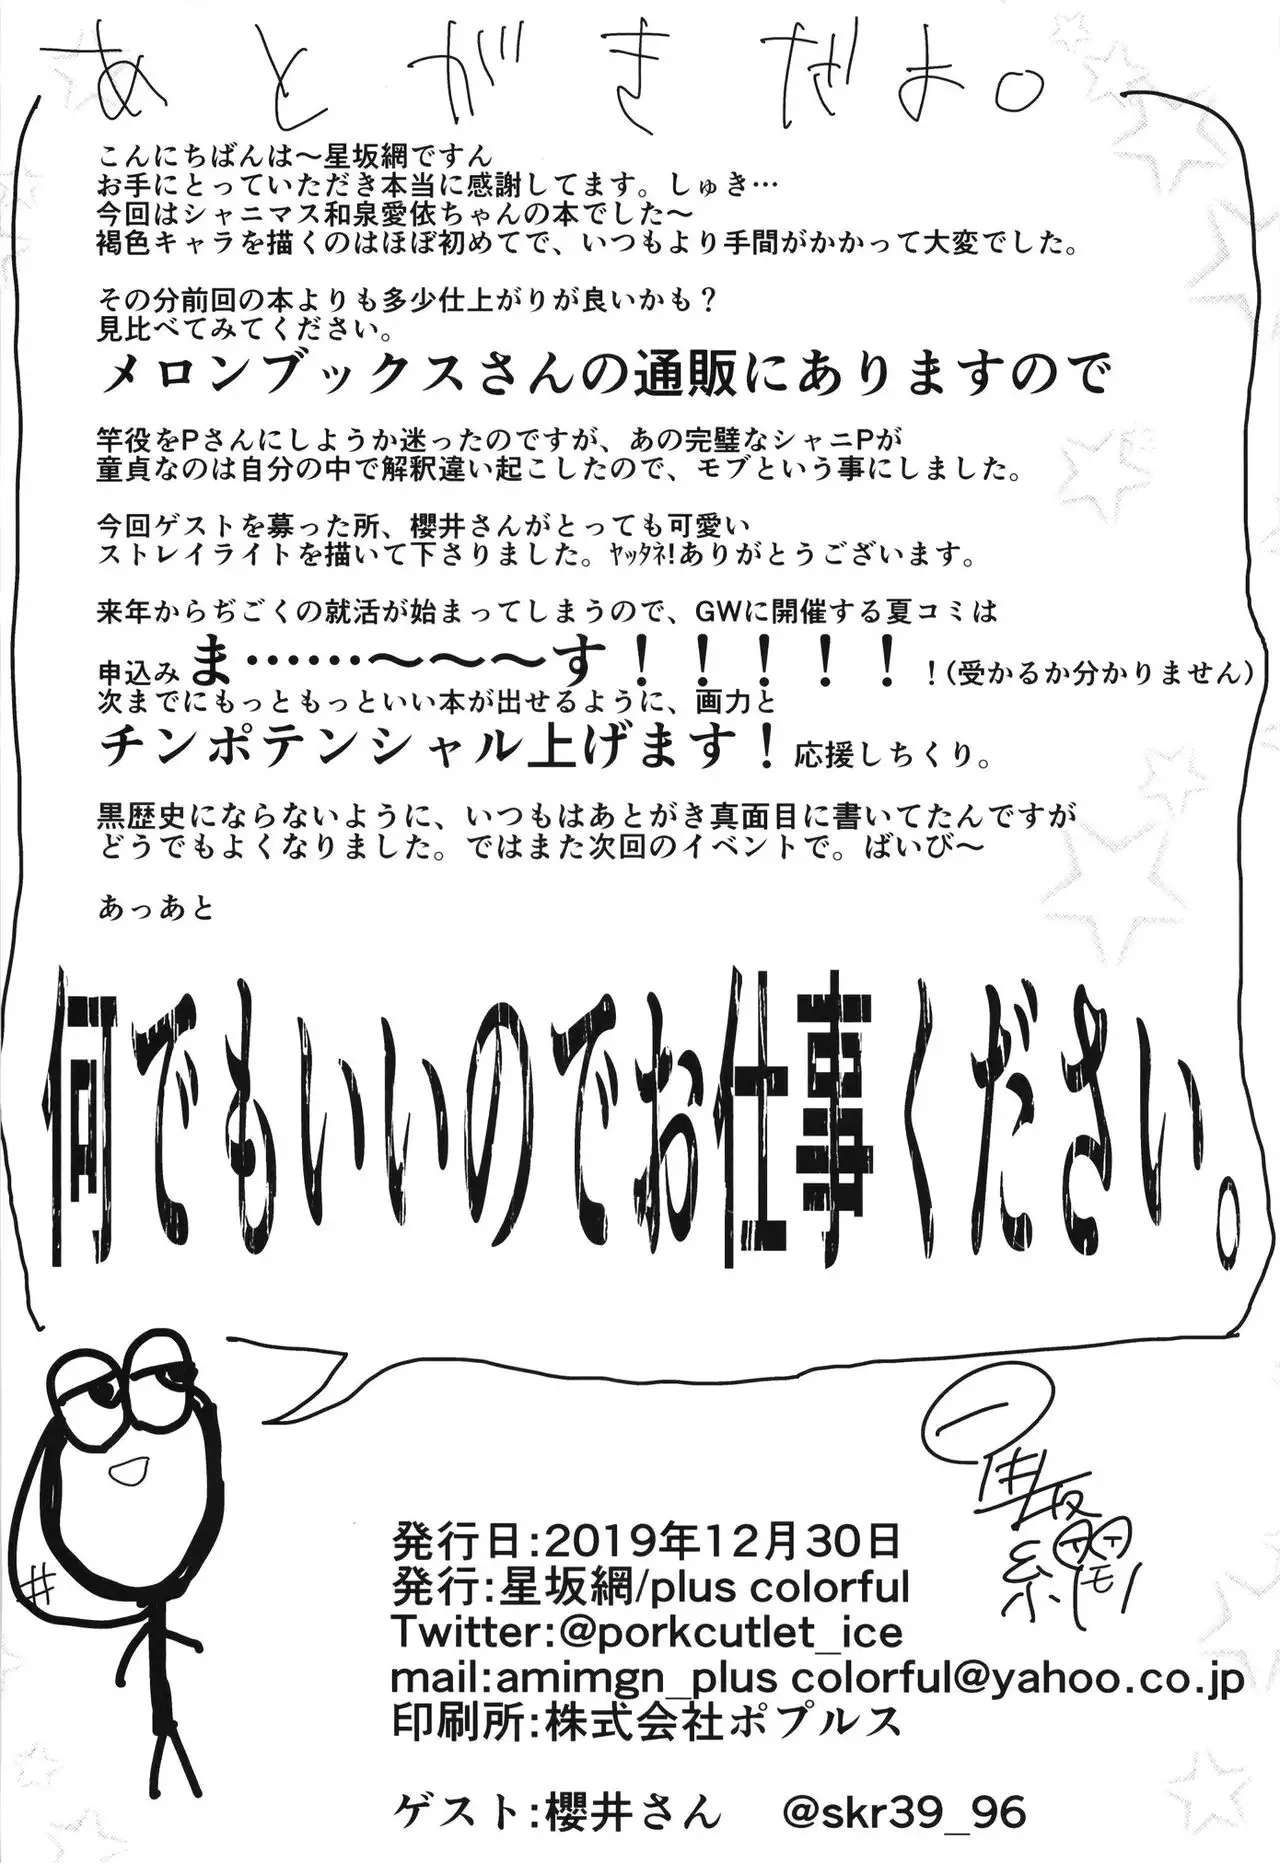 あとがきだよ。
こんにちばんは～星坂網ですん
お手にとっていただき本当に感謝してます。しゅき…
今回はシャニマス和泉愛依ちゃんの本でした～
褐色キャラを描くのはほぼ初めてで、いつもより手間がかかって大変でした。
その分前回の本よりも多少仕上がりが良いかも？
見比べてみてください。
メロンブックスさんの通販にありますので
竿役をPさんにしようか迷ったのですが、あの完璧なシャニPが
童貞なのは自分の中で解釈違い起こしたので、モブという事にしました。
今回ゲストを募った所、櫻井さんがとっても可愛い
ストレイライトを描いて下さりました。ﾔｯﾀﾈ!ありがとうございます。
来年からぢごくの就活が始まってしまうので、GWに開催する夏コミは
申込みま……～～～す！！！！！！(受かるか分かりません)
次までにもっともっといい本が出せるように、画力と
チンポテンシャル上げます！応援しちくり。
黒歴史にならないように、いつもはあとがき真面目に書いてたんですが
どうでもよくなりました。ではまた次回のイベントで。ばいび～
あっあと
何でもいいのでお仕事ください。
発行日:2019年12月30日
発行:星坂網/plus colorful
Twitter:@porkcutlet_ice
mail:amimgn_plus colorful@yahoo.co.jp
印刷所:株式会社ポプルス
ゲスト:櫻井さん @skr39_96